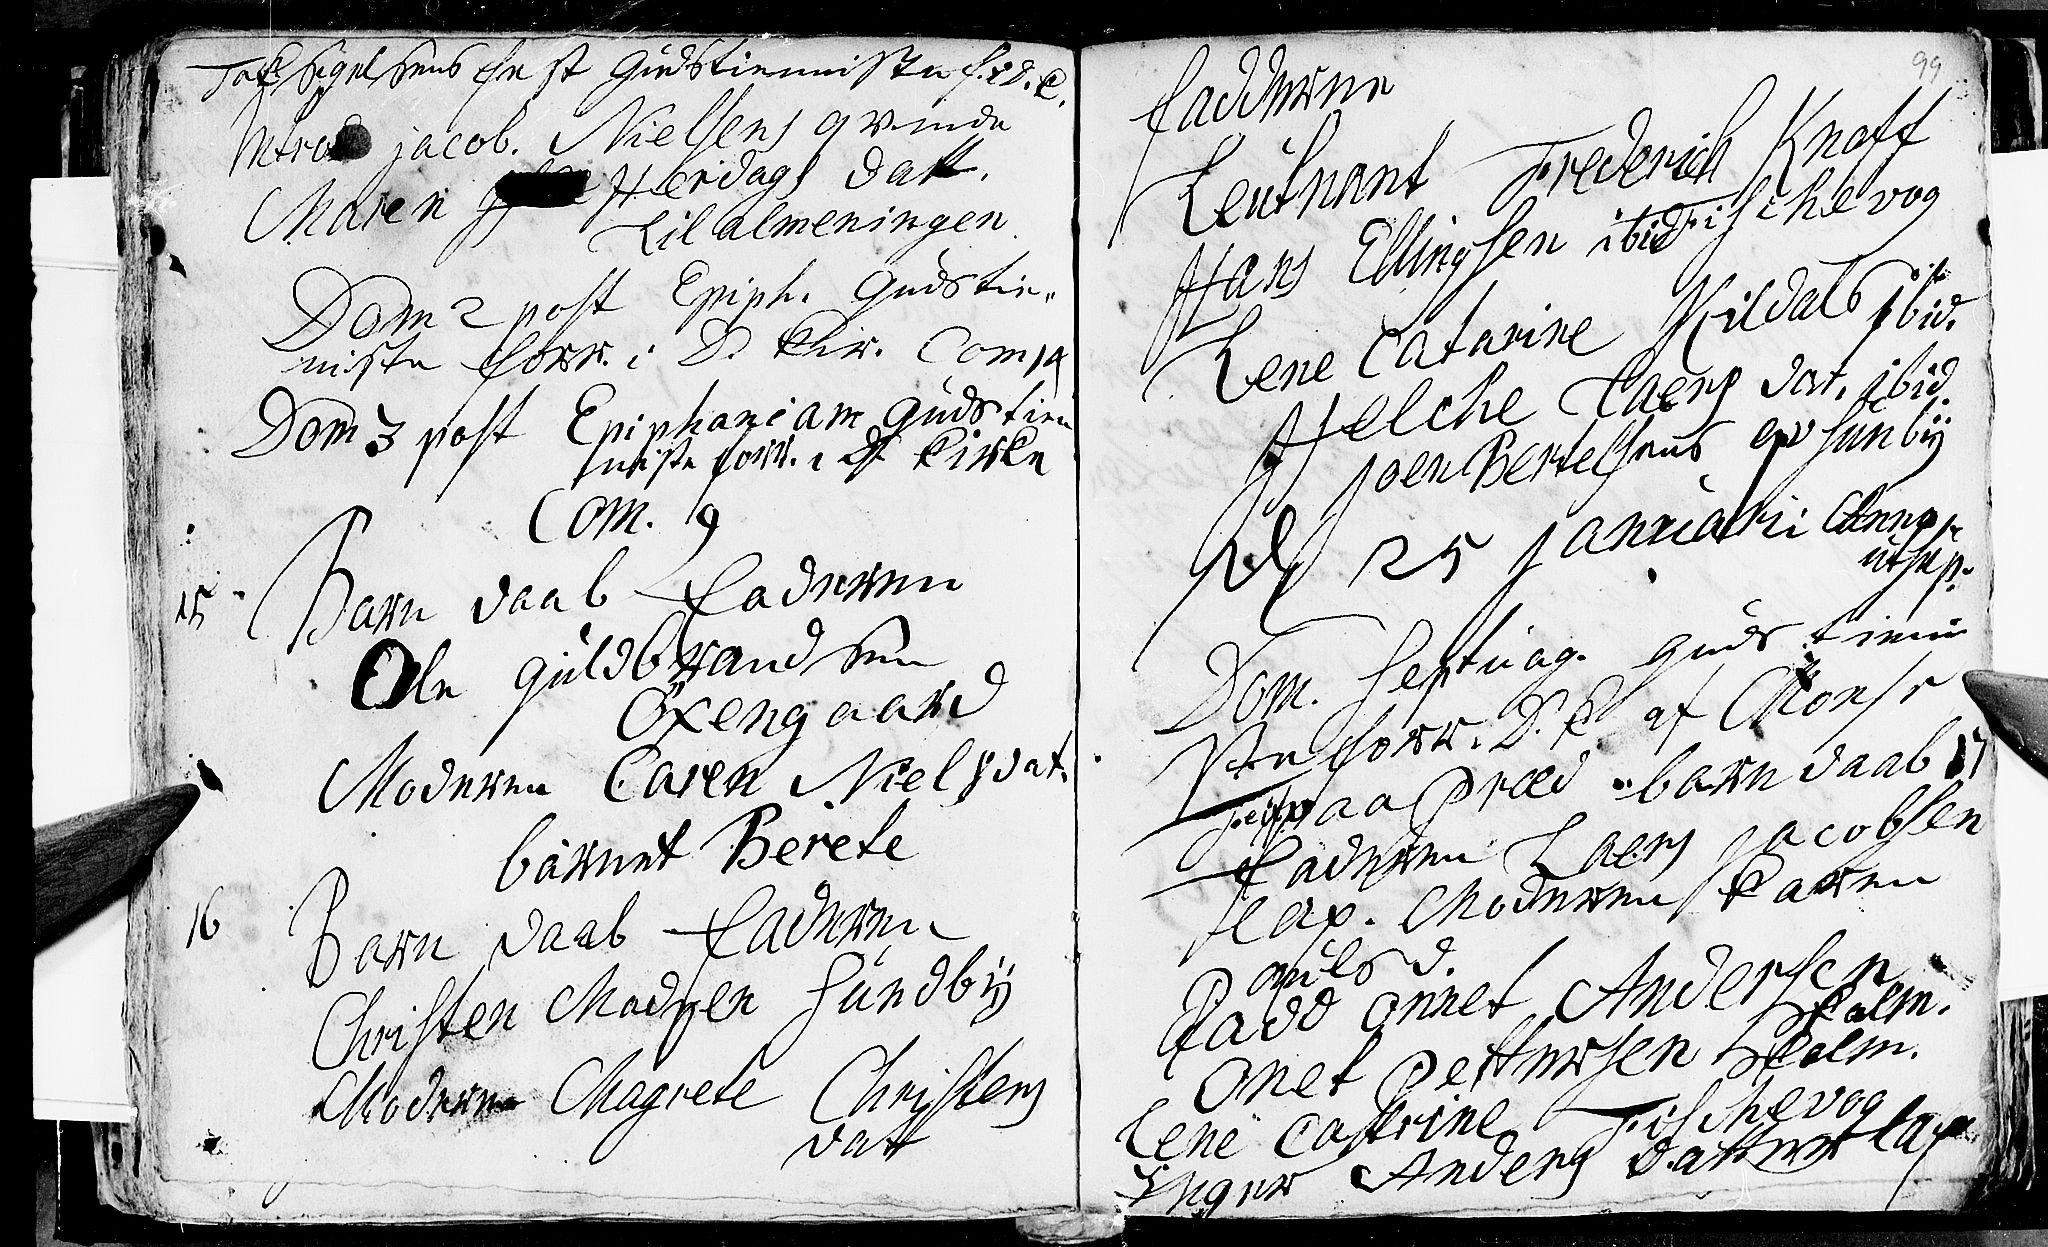 Taksigelsens fest Gudstiennisten f. i D. K.
Introd jacob. Nielsens qvinde
Maren Herdags datt.
Lilalmeningen
Dom 2 post Epiph. Gudstie-
nisten forr. i D. Kir. Com 14
Dom 3 post Epiphaniam Gudstien
nisten forr. i D Kirke
Com. 9
15 Barn daab Faderen
Ole guldbrandsen
Oxengaard
Moderen Caren Niels dat.
barnet Berete
16 Barn daab Faderen
Christen Madsen Sundbÿ
Moderen Magrete Christens
datt
99
fadderne
Leutnant Frederich Knoff
Hans Ellingsen ibid Fischevog
Lene Catarine Kildals ibid.
Helche Laers dat. ibid.
Joen Bertelsens qv Sunbÿ
D 25 januarii Anno
ut sup.
Dom. Septuag. guds tienni
sten forr. D. K af Monsr
barn daab 17
Faderen Laers jacobsen
lax. Moderen Karen
Pouels d.
Fadd Annet Andersen
Holm.
Onet Pettersen Holm.
Lene Catrine Fischevog
Inger Anders datter lax